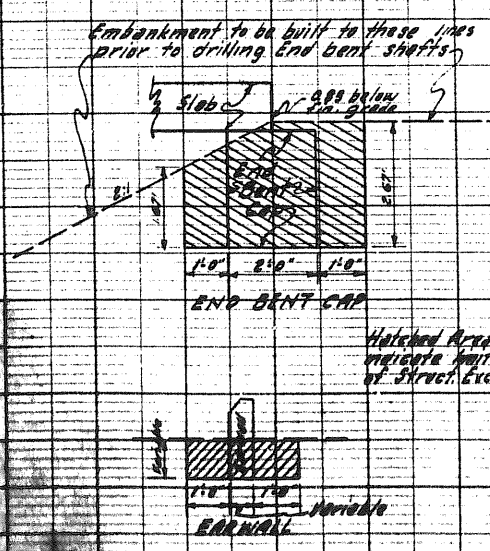 Embankment to be built to these lines
prior to drilling End bent shafts
Slab
0.89 below
fin. grade
End
Bent
Cap
2:1
1.67'
2.67'
1'-0"
2'-0"
1'-0"
END BENT CAP
Hatched Area
indicate
of Struct. Exc
Variable
1'-0"
1'-0"
Variable
EARWALL